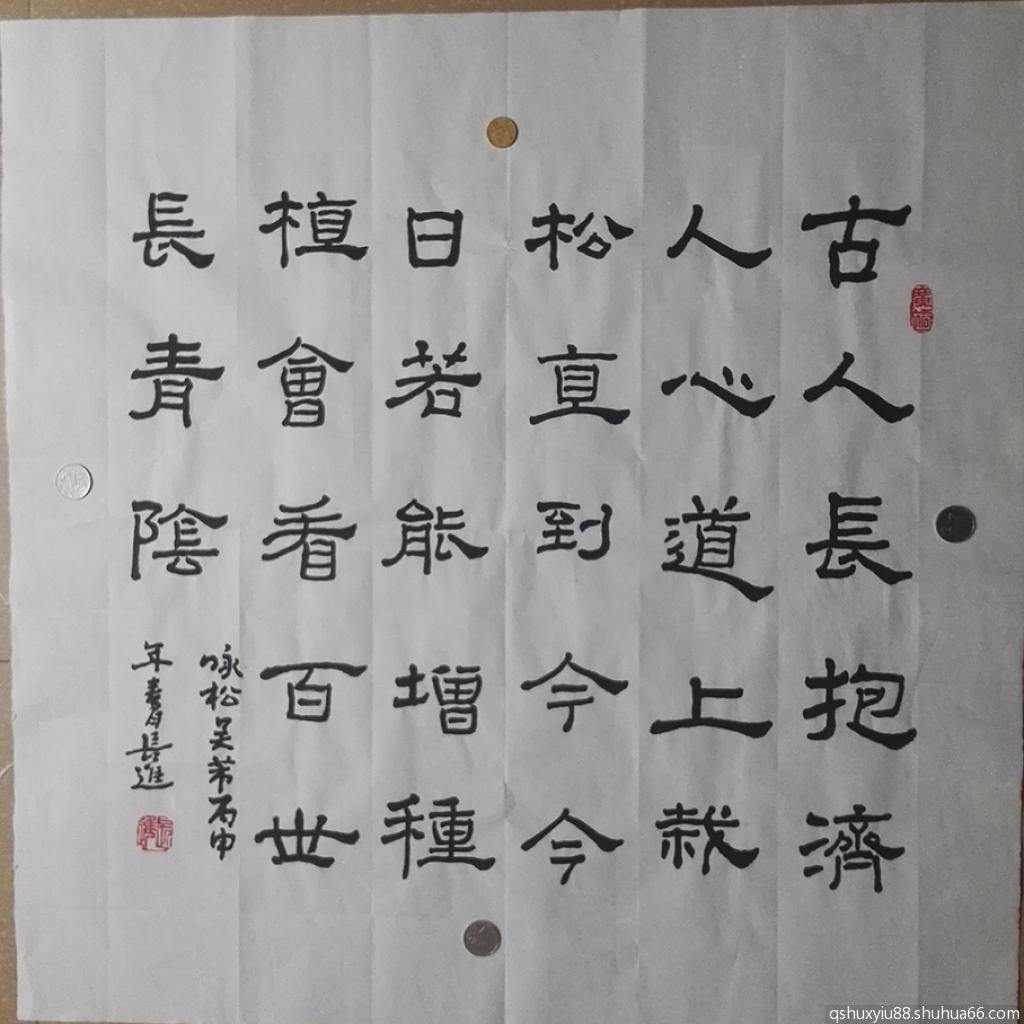 古人長抱濟
人心道上栽
松直到今今
日若能增種
植會看百世
長青陰
咏松吴芾丙申
年長進
qshuxyiu88.shuhua66.com